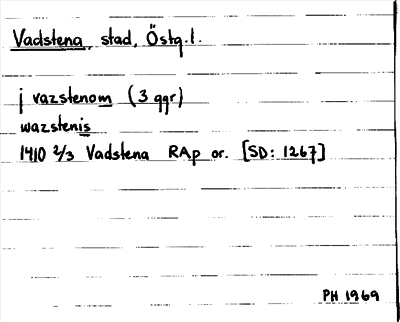 Vadstena, stad, Östg.l.
j vazstenom (3 ggr)
wazstenis
1410 2/3 Vadstena RAp or. [SD: 1267]
PH 1969